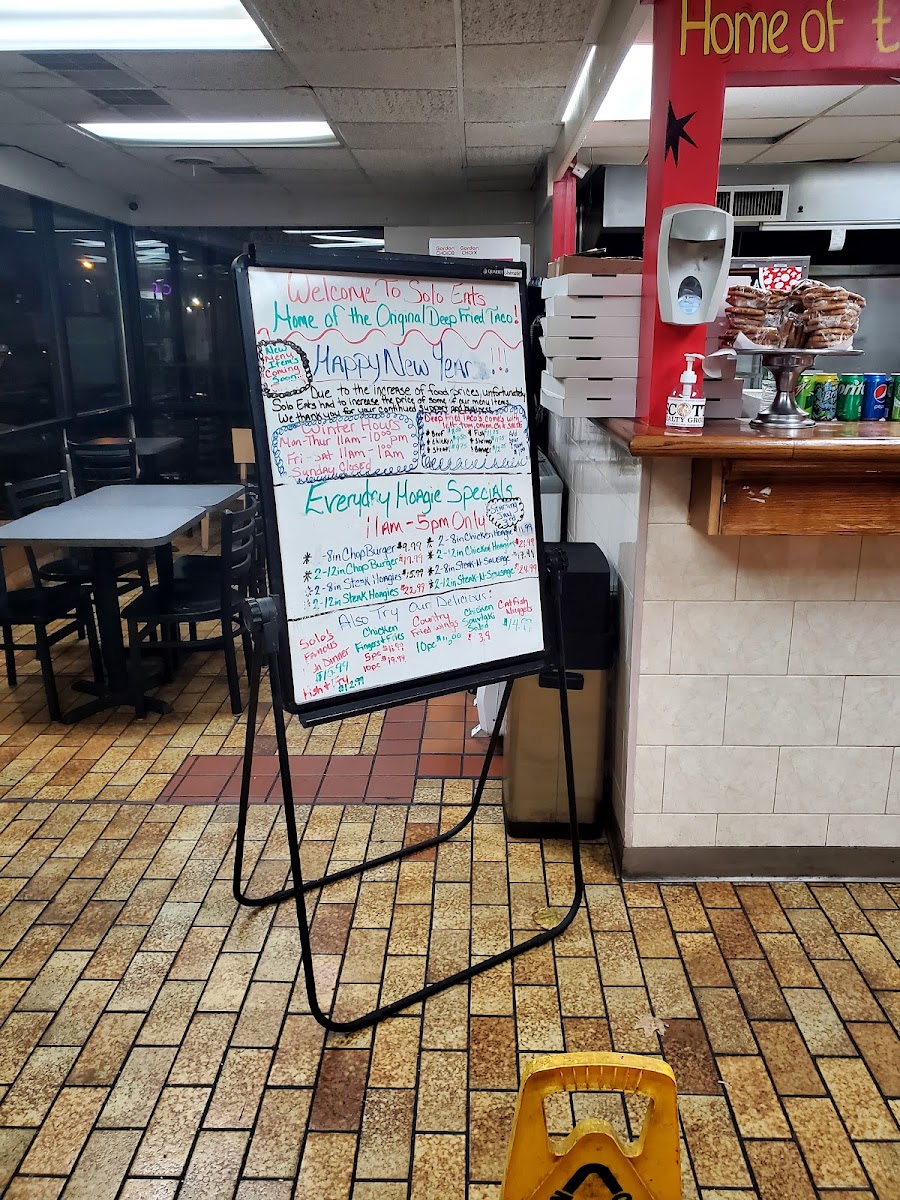 Home of t
Gordon Gordon
CHOICE CHOICE
QUARTET
Welcome To Solo Eats
Home of the Original Deep Fried Taco!
New
Menu
Item's
Coming
Soon!
Happy New Year !!!
Due to the increase of food prices unfortunately
Solo Eats had to increase the price of some of our menu items.
We thank you for your continued support and business
Winter Hours
Mon-Thur 11am-10:00pm
Fri-Sat 11Am-1Am
Sunday Closed
Deep Fried Tacos comes with
* Beef
* Fish
* Chicken
* Shrimp
* Steak
Everyday Hoagie Specials
11Am-5pm Only
Starting
* 2-8in Chop Burger $9.99
* 2-12in Chop Burger $19.99
* 2-8in Steak Hoagies $15.99
* 2-12in Steak Hoagies $22.99
* 2-8in Chicken Hoagie $11.99
* 2-12in Chicken Hoagie $21.99
* 2-8in Steak-N-Sausage $17.99
* 2-12in Steak-N-Sausage $24.99
Also Try Our Delicious!
Solo's
Famous
Dinner
$10.99
Fish + Fry
$12.99
Chicken
Fingers + Fries
5pc
10pc $19.99
Country
Fried Wings
10pc $11.00
Chicken
Salad
Catfish
Nuggets
$14.99
pepsi